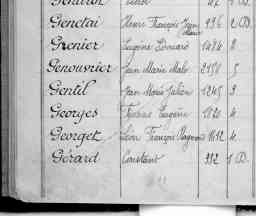 Genetai Henri François Jean Marie 996 2 D.
Grenier Eugène Edouard 1494 2
Genouvrier Jean Marie Malo 2151 5
Gentil Jean Marie Julien 1245 3
Georges Eugène 1820 4
Georget Léon François 1612 4
Gérard Constant 992 1 D.